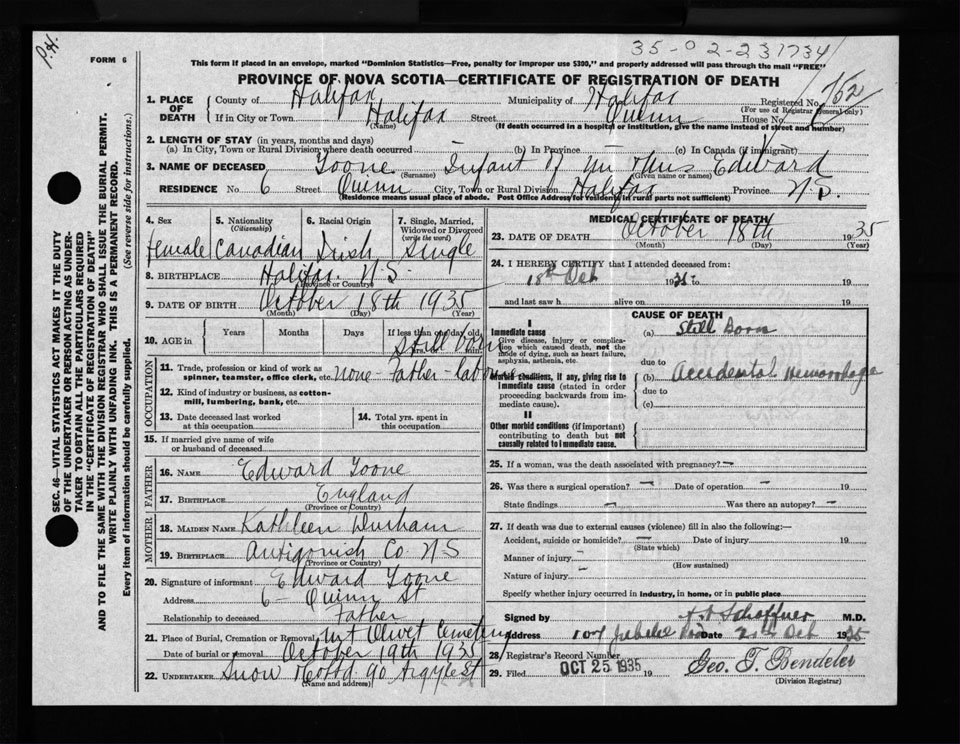 P.H.
35-02-231734
FORM 6
This form if placed in an envelope, marked "Dominion Statistics—Free, penalty for improper use $300," and properly addressed will pass through the mail "FREE"
PROVINCE OF NOVA SCOTIA—CERTIFICATE OF REGISTRATION OF DEATH
1. PLACE OF DEATH
County of Halifax Municipality of Halifax Registered No. 152
(For use of Registrar General only)
If in City or Town Halifax Street Quinn House No. 6
(Name) (If death occurred in a hospital or institution, give the name instead of street and number)
2. LENGTH OF STAY (in years, months and days)
(a) In City, Town or Rural Division where death occurred (b) In Province (c) In Canada (if immigrant)
3. NAME OF DECEASED Toone Infant of Mr Mrs Edward
(Surname) (Given name or names)
RESIDENCE No. 6 Street Quinn City, Town or Rural Division Halifax Province N.S.
(Residence means usual place of abode. Post Office Address for residents in rural parts not sufficient)
4. Sex
Female
5. Nationality
(Citizenship)
Canadian
6. Racial Origin
Irish
7. Single, Married, Widowed or Divorced
(write the word)
Single
8. BIRTHPLACE Halifax N.S.
(Province or Country)
9. DATE OF BIRTH October 18th 1935
(Month) (Day) (Year)
10. AGE in
Years Months Days If less than one day old
Still born
OCCUPATION
11. Trade, profession or kind of work as spinner, teamster, office clerk, etc. none - Father - laborer
12. Kind of industry or business, as cotton-mill, lumbering, bank, etc.
13. Date deceased last worked at this occupation
14. Total yrs. spent in this occupation
15. If married give name of wife or husband of deceased
FATHER
16. NAME Edward Toone
17. BIRTHPLACE England
(Province or Country)
MOTHER
18. MAIDEN NAME Kathleen Durham
19. BIRTHPLACE Antigonish Co. N.S
(Province or Country)
20. Signature of informant Edward Toone
Address 6 - Quinn St
Relationship to deceased Father
21. Place of Burial, Cremation or Removal Mt Olivet Cemetery
Date of burial or removal October 19th 1935
22. UNDERTAKER Snow & Co Ltd 90 Argyle St
(Name and address)
MEDICAL CERTIFICATE OF DEATH
23. DATE OF DEATH October 18th 1935
(Month) (Day) (Year)
24. I HEREBY CERTIFY that I attended deceased from:
18th Oct 1935 to 19
and last saw h alive on 19
CAUSE OF DEATH
I
Immediate cause
Give disease, injury or complication which caused death, not the mode of dying, such as heart failure, asphyxia, asthenia, etc.
(a) Still Born
due to
Morbid conditions, if any, giving rise to immediate cause (stated in order proceeding backwards from immediate cause).
(b) Accidental Hemorrhage
due to
(c)
II
Other morbid conditions (if important) contributing to death but not causally related to immediate cause.
25. If a woman, was the death associated with pregnancy? —
26. Was there a surgical operation? — Date of operation — 19
State findings — Was there an autopsy? —
27. If death was due to external causes (violence) fill in also the following:—
Accident, suicide or homicide? — Date of injury 19
(State which)
Manner of injury —
(How sustained)
Nature of injury —
Specify whether injury occurred in industry, in home, or in public place
Signed by Schaffner M.D.
Address 107 Jubilee Rd Date 21st Oct 1935
28. Registrar's Record Number
29. Filed OCT 25 1935 19 Geo. T. Bendeler
(Division Registrar)
SEC. 46—VITAL STATISTICS ACT MAKES IT THE DUTY
OF THE UNDERTAKER OR PERSON ACTING AS UNDER-
TAKER TO OBTAIN ALL THE PARTICULARS REQUIRED
IN THE "CERTIFICATE OF REGISTRATION OF DEATH"
AND TO FILE THE SAME WITH THE DIVISION REGISTRAR WHO SHALL ISSUE THE BURIAL PERMIT.
WRITE PLAINLY WITH UNFADING INK. THIS IS A PERMANENT RECORD.
Every item of information should be carefully supplied. (See reverse side for instructions.)